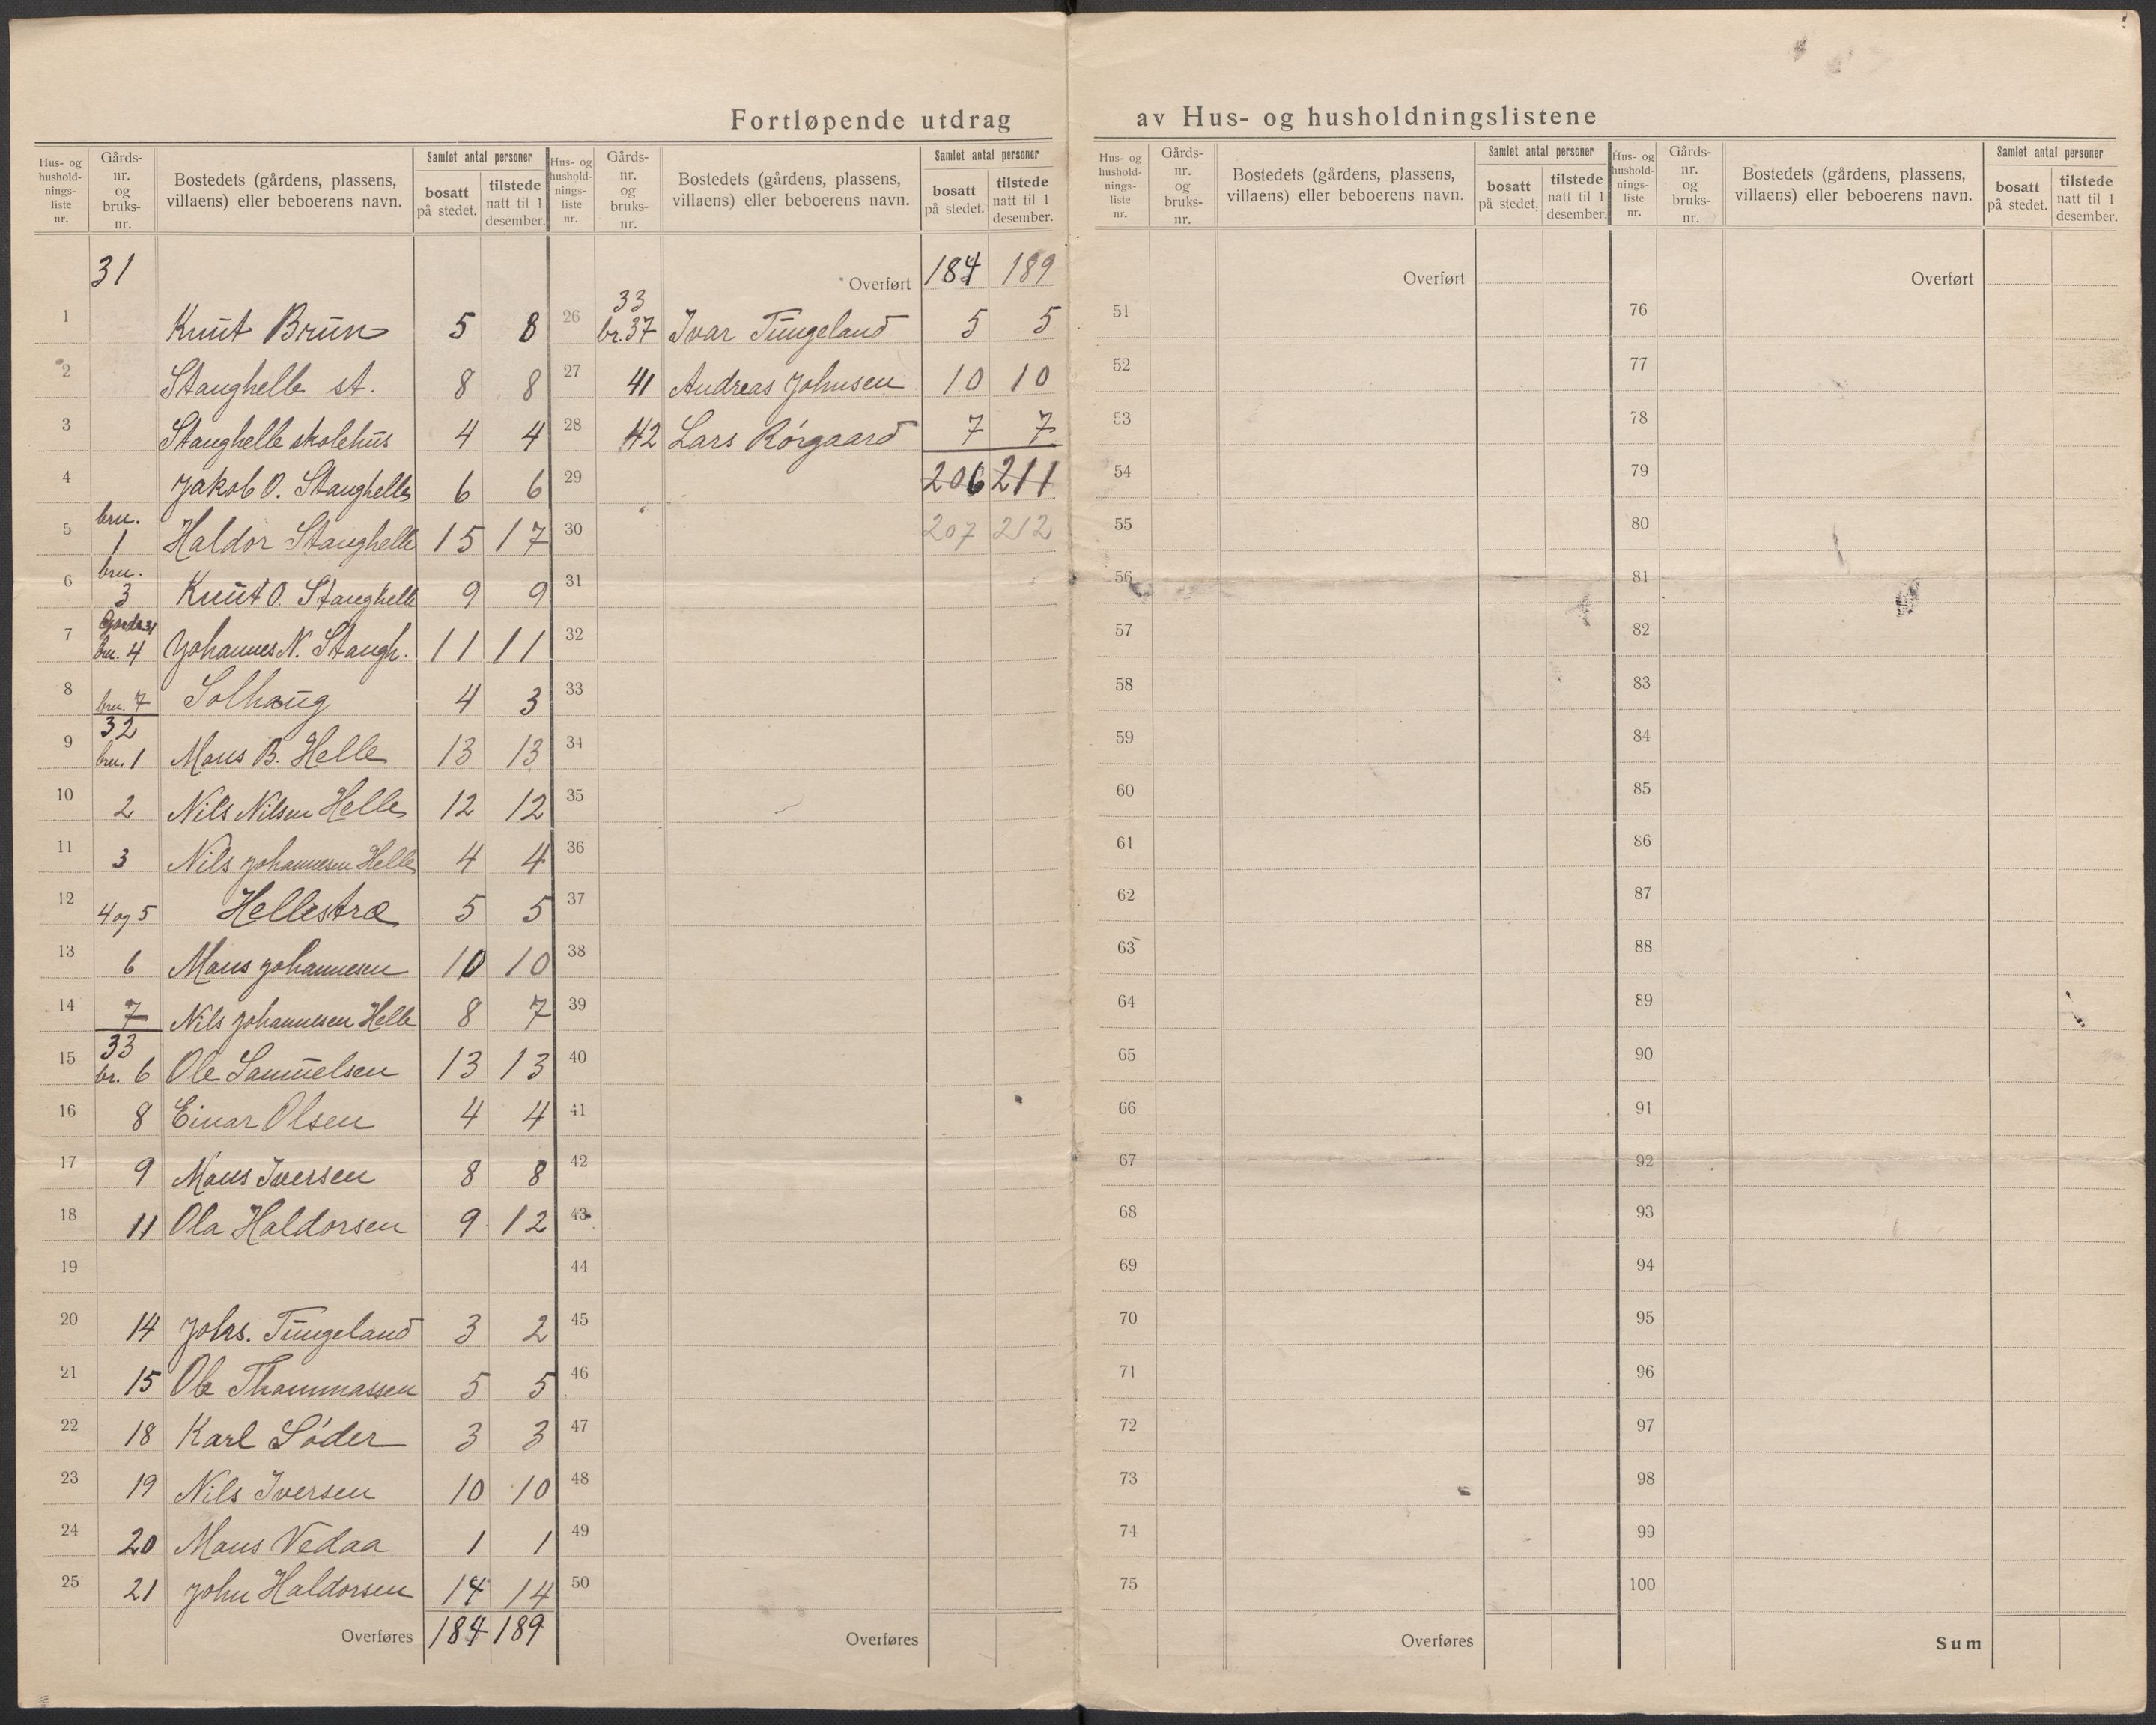 Fortløpende utdrag av Hus- og husholdningslistene
Hus- og husholdnings-liste nr. | Gårds-nr. og bruks-nr. | Bostedets (gårdens, plassens, villaens) eller beboerens navn. | Samlet antal personer | bosatt på stedet. | tilstede natt til 1 desember.
31
1 Knut Brun 5 8
2 Stanghelle st. 8 8
3 Stanghelle skolehus 4 4
4 Jakob O. Stanghelle 6 6
5 bru. 1 Haldor Stanghelle 15 17
6 bru. 3 Knut O. Stanghelle 9 9
7 bru. 4 Johannes N. Stangh. 11 11
8 bru. 7 Solhaug 4 3
32
9 bru. 1 Mons B. Helle 13 13
10 2 Nils Nilsen Helle 12 12
11 3 Nils Johannesen Helle 4 4
12 4 og 5 Hellestræ 5 5
13 6 Mons Johannesen 10 10
14 7 Nils Johannesen Helle 8 7
33
15 br. 6 Ole Samuelsen 13 13
16 8 Einar Olsen 4 4
17 9 Mons Iversen 8 8
18 11 Ola Haldorsen 9 12
19
20 14 Johs. Tungeland 3 2
21 15 Ole Thommassen 5 5
22 18 Karl Söder 3 3
23 19 Nils Iversen 10 10
24 20 Mons Vedaa 1 1
25 21 John Haldorsen 14 14
Overføres 184 189
Hus- og husholdnings-liste nr. | Gårds-nr. og bruks-nr. | Bostedets (gårdens, plassens, villaens) eller beboerens navn. | Samlet antal personer | bosatt på stedet. | tilstede natt til 1 desember.
Overført 184 189
33
26 br. 37 Ivar Tungeland 5 5
27 41 Andreas Johnsen 10 10
28 42 Lars Rörgaard 7 7
29 206 211
30 207 212
31
32
33
34
35
36
37
38
39
40
41
42
43
44
45
46
47
48
49
50
Overføres
Hus- og husholdnings-liste nr. | Gårds-nr. og bruks-nr. | Bostedets (gårdens, plassens, villaens) eller beboerens navn. | Samlet antal personer | bosatt på stedet. | tilstede natt til 1 desember.
Overført
51
52
53
54
55
56
57
58
59
60
61
62
63
64
65
66
67
68
69
70
71
72
73
74
75
Overføres
Hus- og husholdnings-liste nr. | Gårds-nr. og bruks-nr. | Bostedets (gårdens, plassens, villaens) eller beboerens navn. | Samlet antal personer | bosatt på stedet. | tilstede natt til 1 desember.
Overført
76
77
78
79
80
81
82
83
84
85
86
87
88
89
90
91
92
93
94
95
96
97
98
99
100
Sum